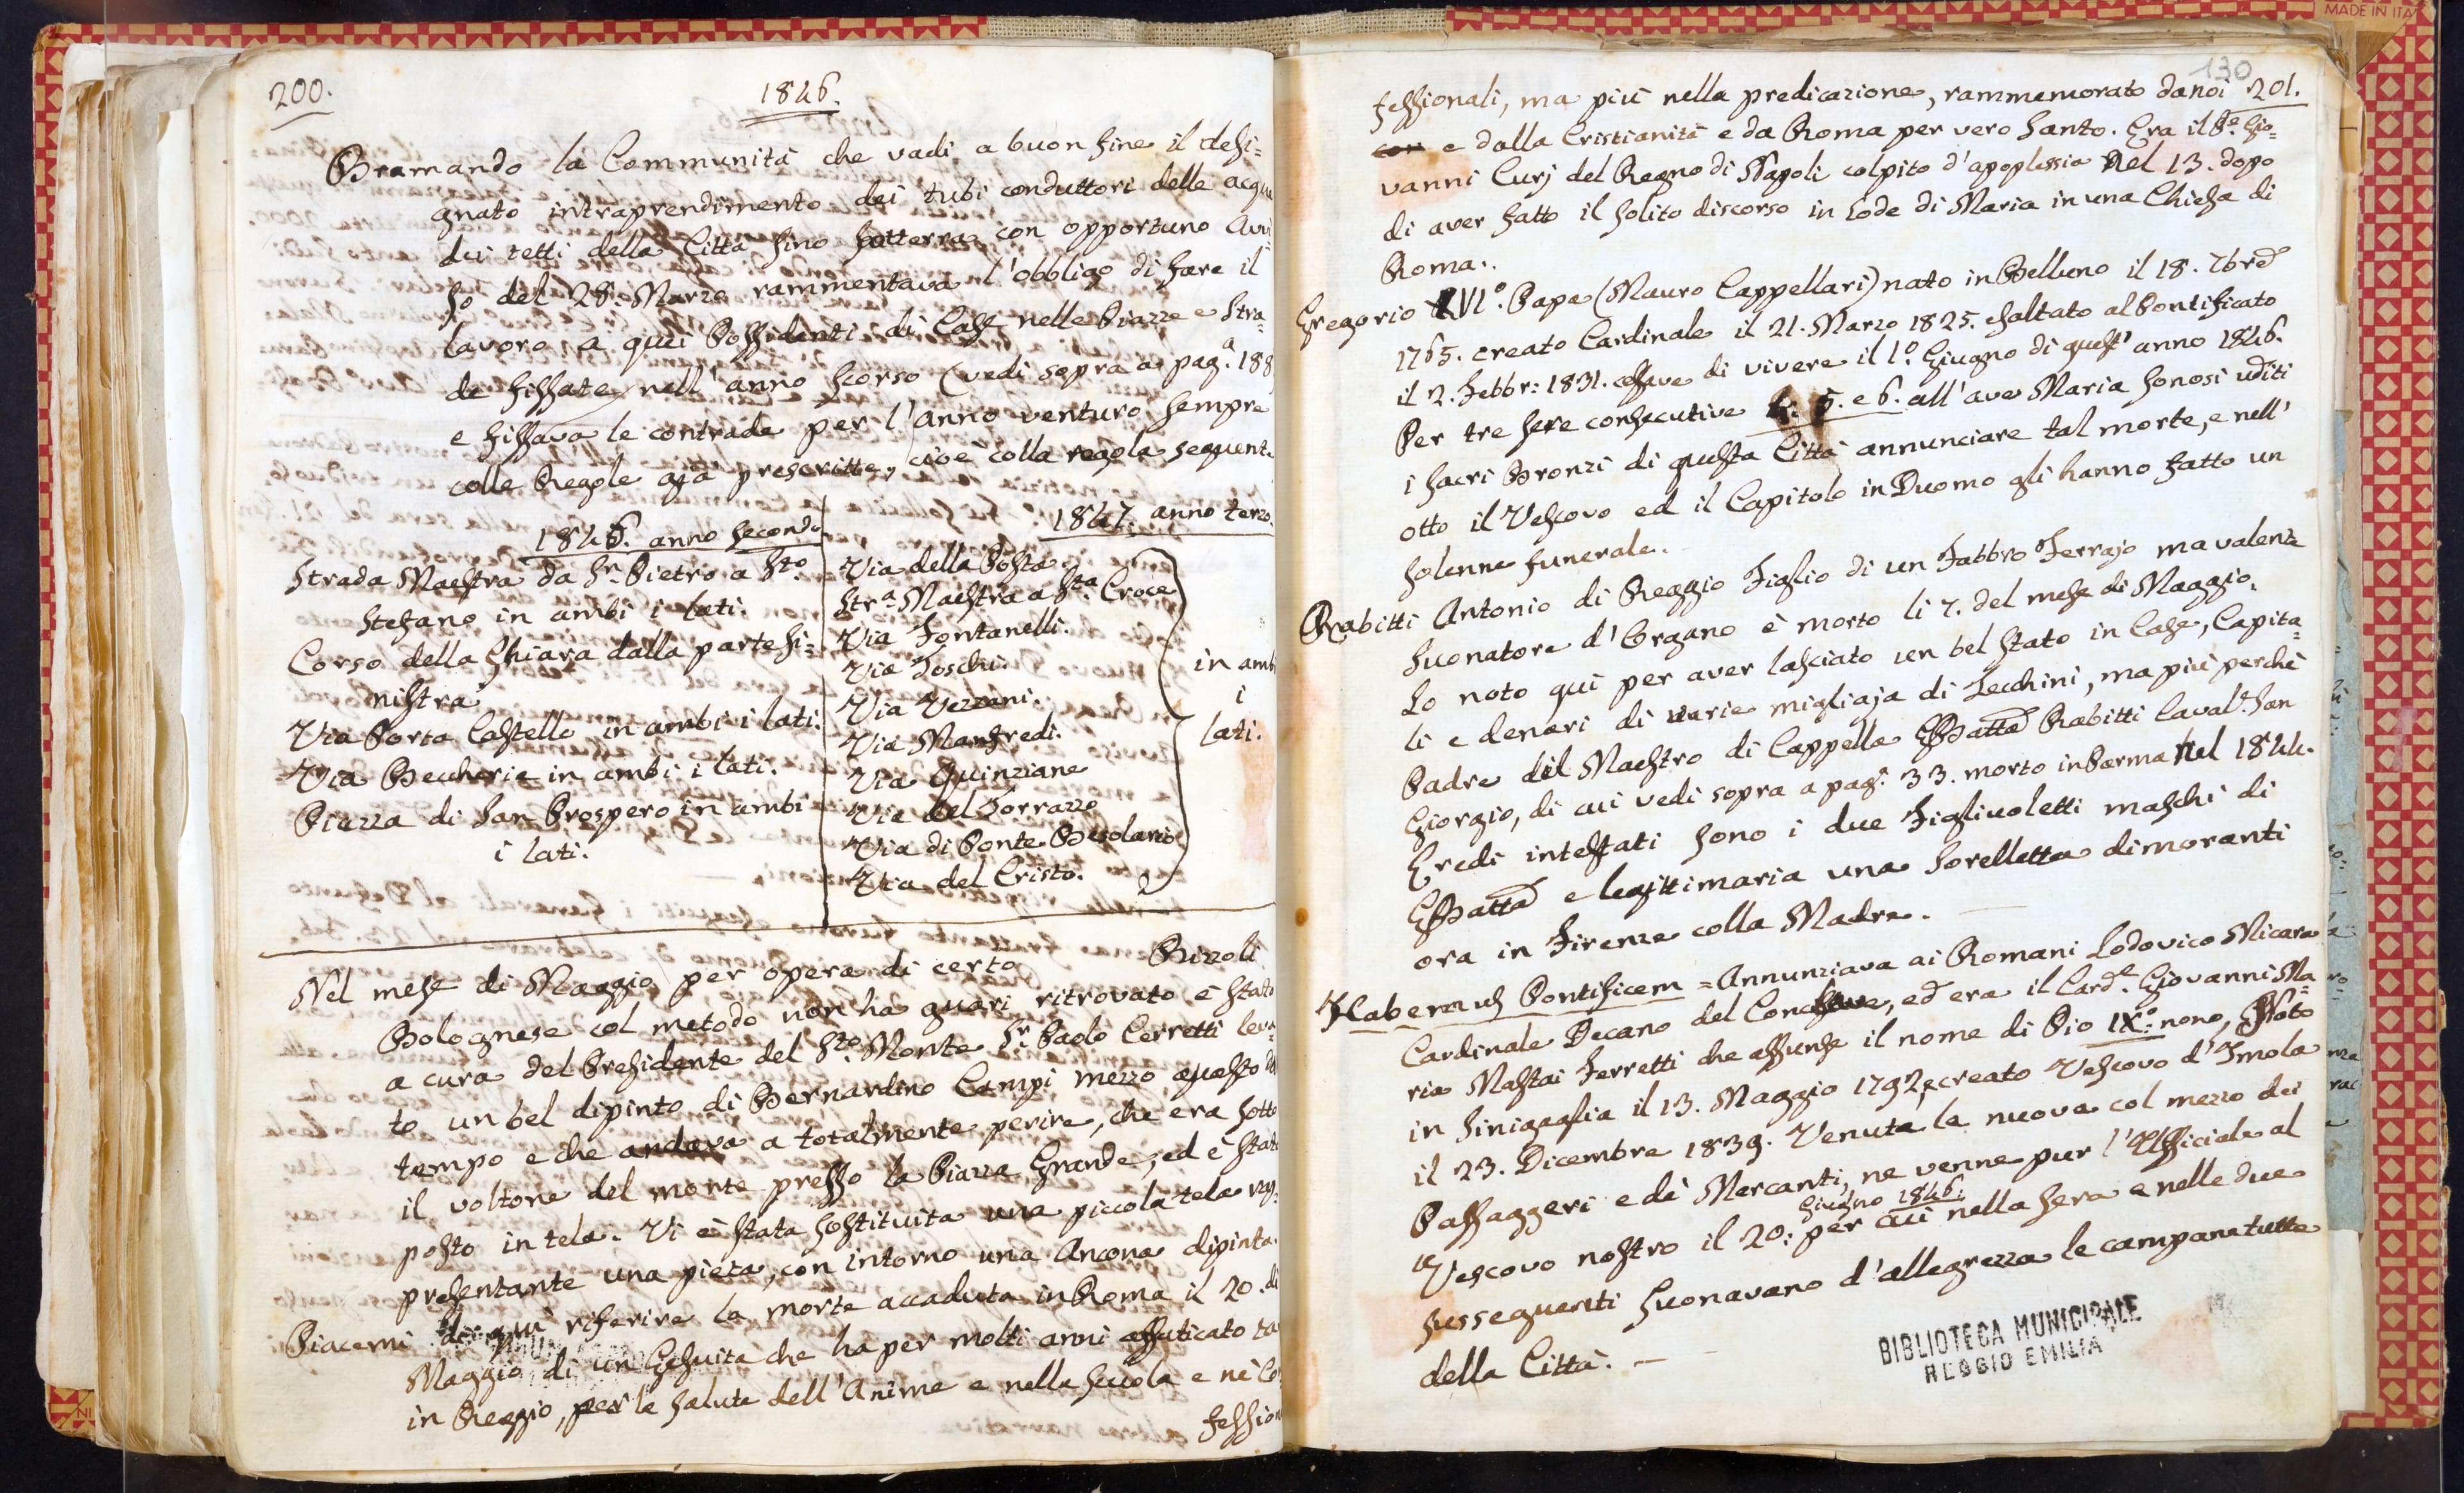 MADE IN ITA
200.
1846.
Bramando la Communità che vadi a buon fine il desi=
gnato intraprendimento dei tubi conduttori delle acque
dei tetti della Città sino sotterra, con opportuno Avvi=
so del 28. Marzo rammentava l'obbligo di fare il
lavoro a quei Possidenti di Case nelle Piazze e Stra=
de fissate nell'anno scorso (vedi sopra a pag.ª 188
e fissava le contrade per l'anno venturo sempre
colle Regole già prescritte, cioè colla regola seguente
1846. anno secondo
Strada Maestra da S.n Pietro a S.to
Stefano in ambi i lati.
Corso della Ghiara dalla parte si=
nistra
Via Porta Castello in ambi i lati.
Via Beccherie in ambi i lati.
Piazza di San Prospero in ambi
i lati.
1847. anno terzo.
Via della Posta
Str.ª Maestra a S.ta Croce
Via Fontanelli.
Via Toschi.
Via Vezzani.
Via Manfredi.
Via Quinziane
Via del Torrazzo
Via di Ponte Besolario
Via del Cristo.
in ambi
i
lati.
Nel mese di Maggio per opera di certo Rizzoli
Bolognese col metodo non ha guari ritrovato è stato
a cura del Presidente del S.to Monte S.r Paolo Cerretti leva
to un bel dipinto di Bernardino Campi mezzo guasto dal
tempo e che andava a totalmente perire, che era sotto
il voltone del monte presso la Piazza Grande, ed è stato
posto in tela. Vi è stata sostituita una piccola tela rap=
presentante una pietà, con intorno una Ancona dipinta.
Piacemi di quì riferire la morte accaduta in Roma il 20. di
Maggio di un Gesuita che ha per molti anni affaticato ta
in Reggio, per la salute dell'Anime e nella Scuola e nè Co
fession
130
201.
fessionali, ma più nella predicazione, rammemorato da noi
e dalla Cristianità e da Roma per vero Santo. Era il P.e Gio=
vanni Curj del Regno di Napoli colpito d'apoplessia nel 13. dopo
di aver fatto il solito discorso in lode di Maria in una Chiesa di
Roma.
Gregorio XVI.º Papa (Mauro Cappellari) nato in Belluno il 18. 7bre
1765. creato Cardinale il 21. Marzo 1825. esaltato al Pontificato
il 2. Febbr: 1831. cessave di vivere il 1.º Giugno di quest'anno 1846.
Per tre sere consecutive 4. 5. e 6. all'ave Maria sonosi uditi
i sacri Bronzi di questa Città annunciare tal morte, e nell'
otto il Vescovo ed il Capitolo in Duomo gli hanno fatto un
solenne funerale.
Rabitti Antonio di Reggio Figlio di un Fabbro Ferrajo ma valente
suonatore d'Organo è morto li 7. del mese di Maggio.
Lo noto quì per aver lasciato un bel stato in Case, Capita=
li e denari di varie migliaja di Zecchini, ma più perchè
Padre del Maestro di Cappella GBatta Rabitti Caval.r San
Giorgio, di cui vedi sopra a pag.ª 33. morto in Parma nel 1844.
Eredi intestati sono i due Figliuoletti maschi di
GBatta e legittimaria una Sorelletta dimoranti
ora in Firenze colla Madre.
Habemus Pontificem = Annunziava ai Romani Lodovico Micara
Cardinale Decano del Conclave, ed era il Card.e Giovanni Ma=
ria Mastai Ferretti che assunse il nome di Pio IX.º nono, Nato
in Sinigaglia il 13. Maggio 1792, creato Vescovo d'Imola
il 23. Dicembre 1839. Venuta la nuova col mezzo dei
Passaggeri e dè Mercanti, ne venne pur l'Ufficiale al
Vescovo nostro il 20: Giugno 1846: per cui nella sera e nelle due
susseguenti suonavano d'allegrezza le campane tutte
della Città. —
BIBLIOTECA MUNICIPALE
REGGIO EMILIA